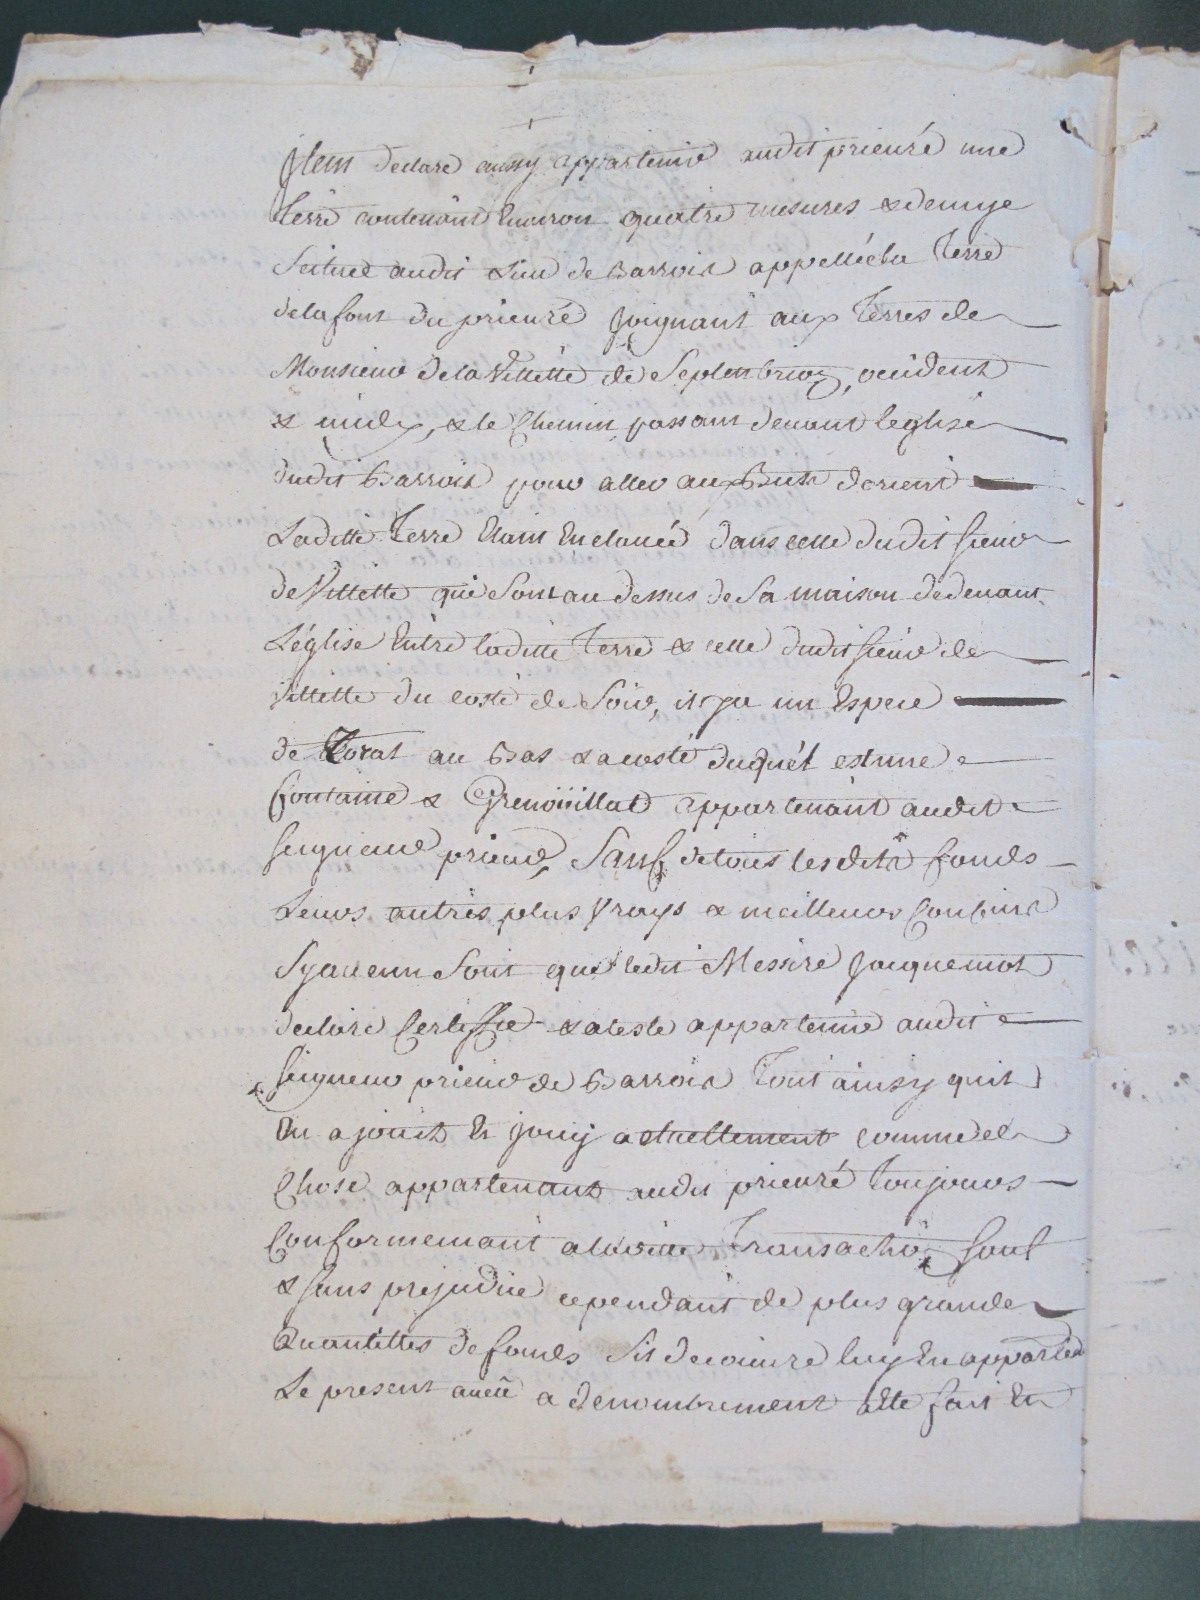 Item declare aussy appartenir audit prieuré une
Terre contenant Environ quatre mesures & demye
Scituee audit Lieu de Barroix appellée la Terre
delafont du prieuré Joignant aux Terres de
Monsieur De la Villette de occident
& midy, & le Chemin passant devant leglise
dudit Barroix pour aller aux dorient
Laditte Terre Etant Enclavée dans celle dudit sieur
de Villette qui Sont au dessus de Sa maison de devant
L'église Entre laditte Terre & celle dudit sieur de
Villette du costé de Soir, il ya un Espece
de au Bas & a costé duquél est une
fontaine & Grenoüillat appartenant audit
seigneur prieur, Sauf de tous lesdits fonds
Leurs autres plus Vrays & meilleurs Confins
Sy aucuns Sont que ledit Messire Jacquemot
declare Certiffie & ateste appartenir audit
seigneur prieur de Barroix Tout ainsy quil
En a jouit & jouy actuellement comme de
Chose appartenant audit prieuré Toujours
Conformement a ladite Transactiõ, Sauf
& sans prejudice cependant de plus grande
Quantittes de fonds Sil decouvre luy En appartenir
Le present aveü & denombrement Etté fait En